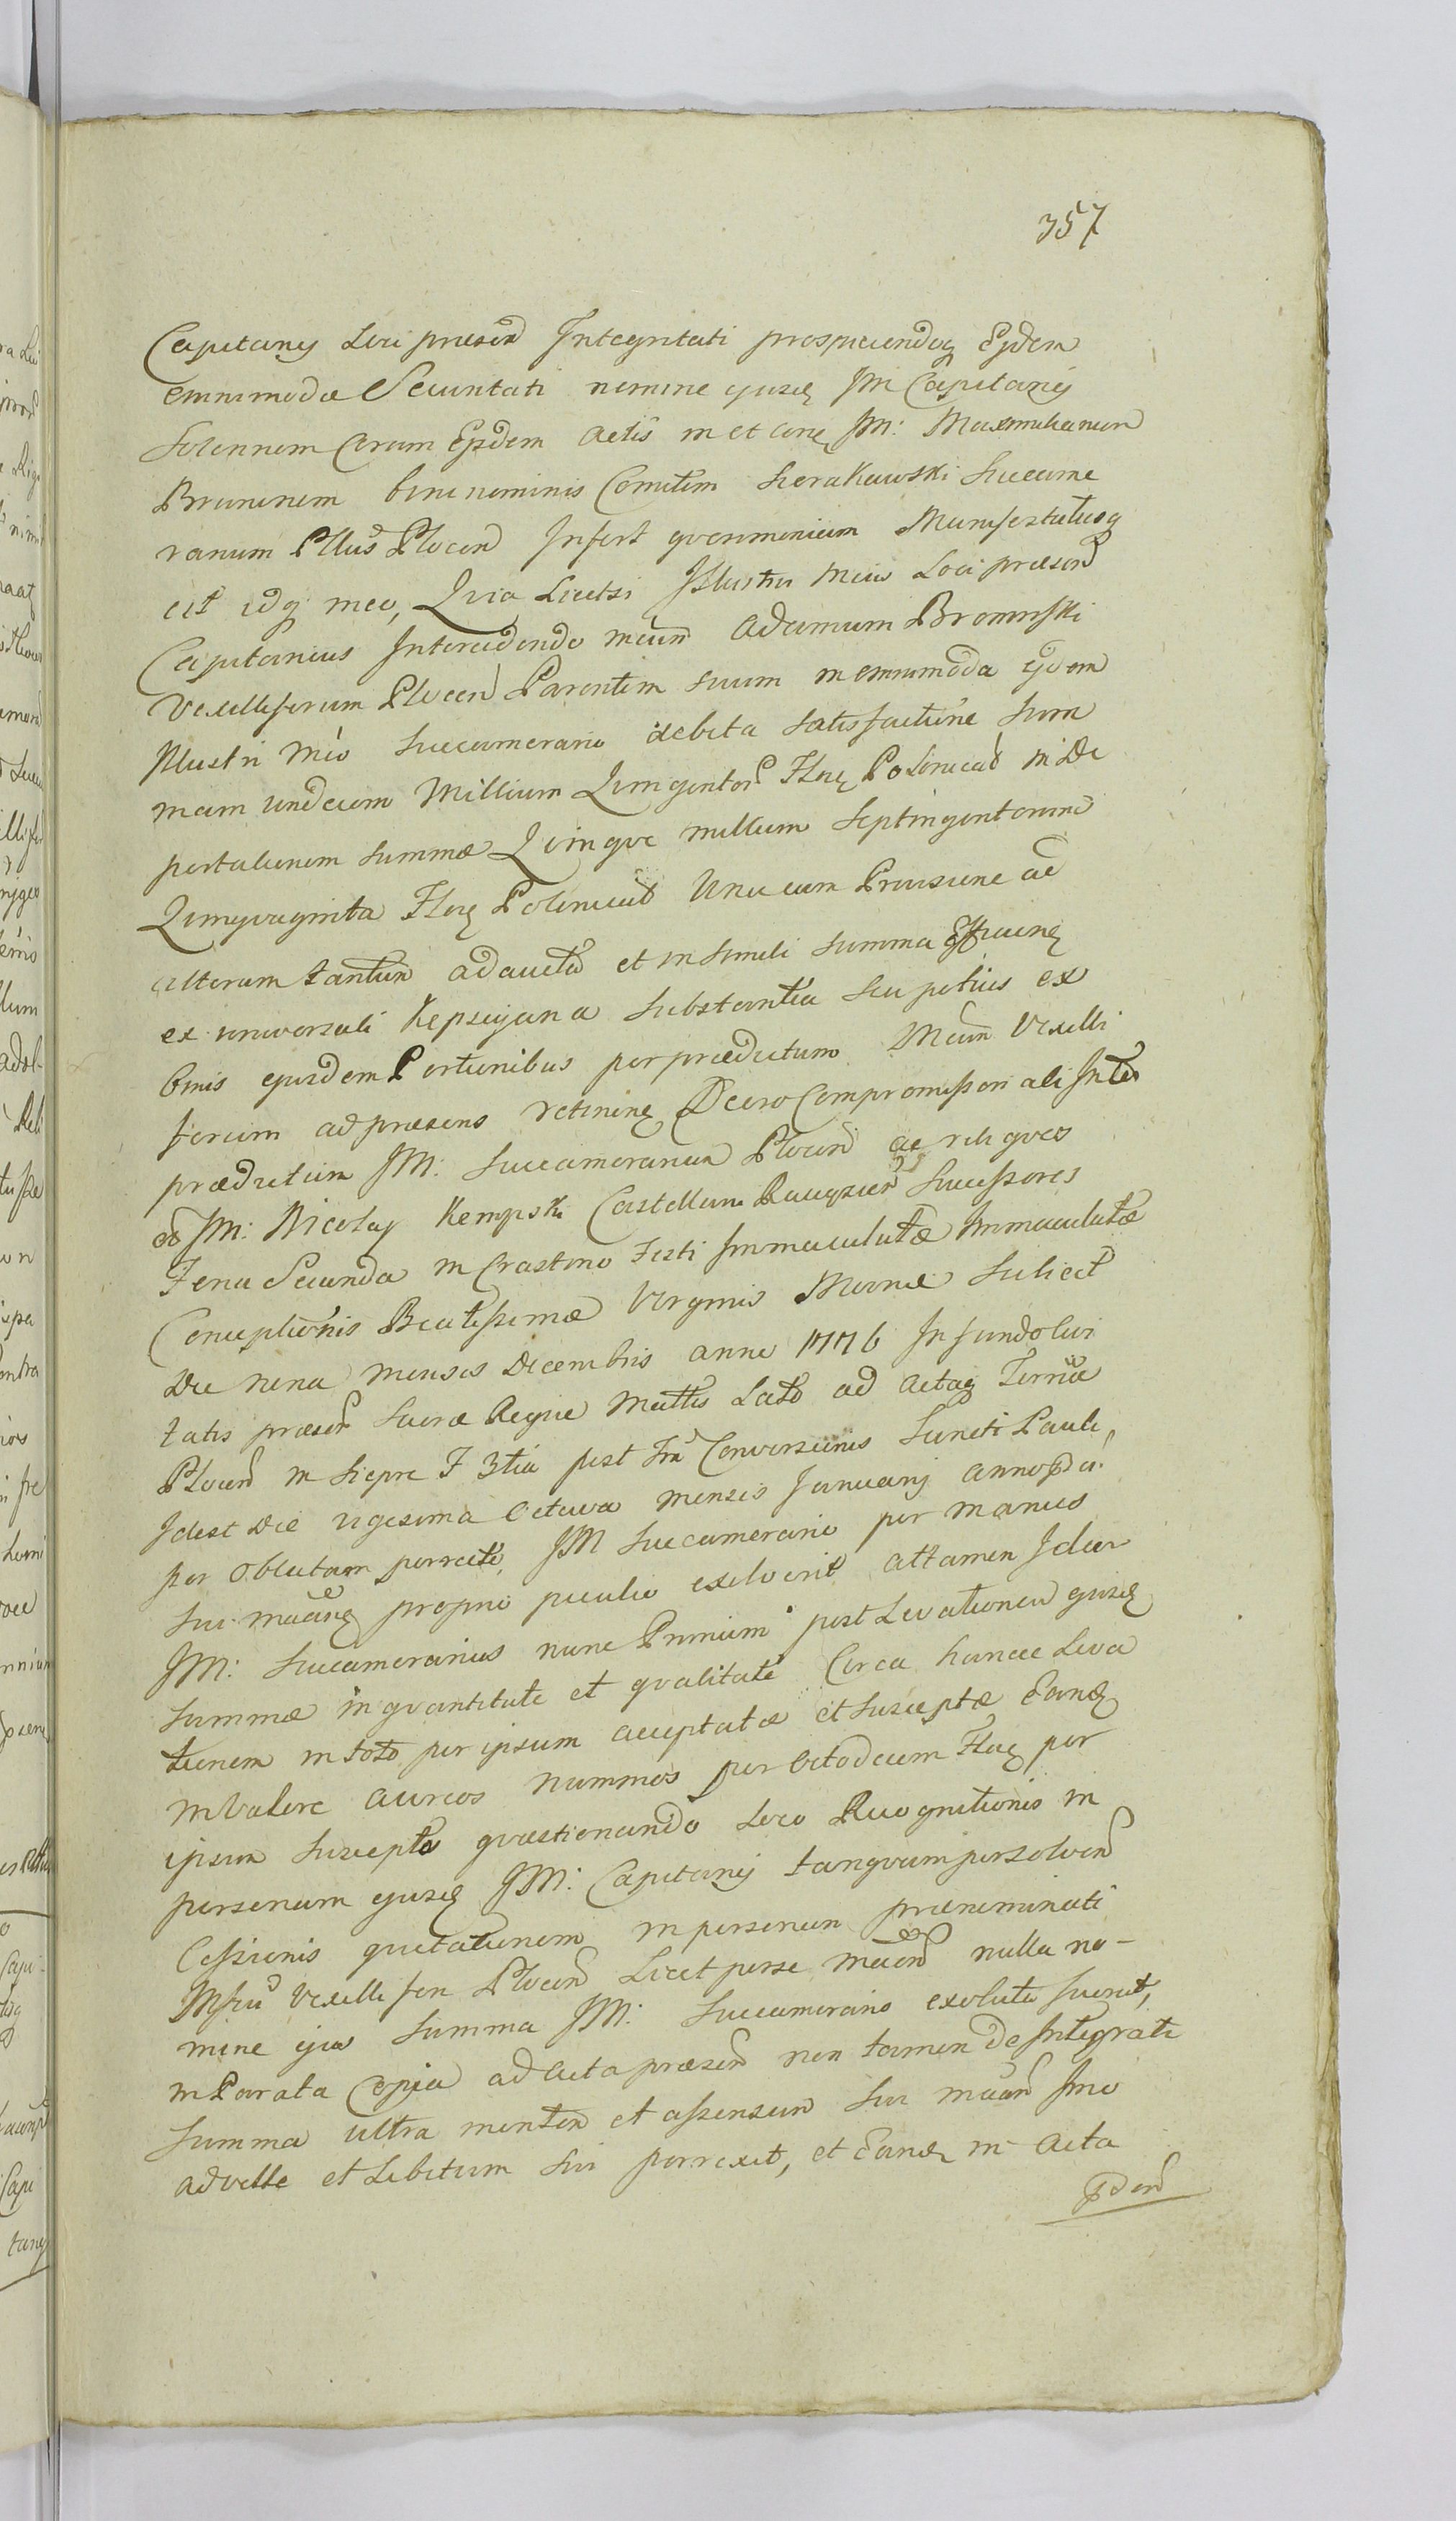 357
Capitanij Loci præsen Integritati prospiciendoq Ejdem
omnimodæ Securitati nomine ejusq JM Capitanij
Solennem Coram Ejsdem Actis in et conq JM: Maximilianum
Brunonem bini nominis Comitem Sierakowski Succame
rarium Pllus Plocen Infert qverimoniam Manifestatusq
est idq meo, Qvia Licetsi Illustri Mcio Loci præsen
Capitaneus Intercedendo mcum Adamum Bromirski
Vexilliferum Plocen Parentem suum in omnimoda ejdem
Illustri Mco Succamerario debita satisfactione Sum
mam undecim Millium Qvingentor Flor Polonical in De
portationem summæ Qvinqve millium Septingentorum
Qvinqvaginta Flor Polonical Una cum Provisione ad
alterum tantum adaucta et in simili summa Efficienq
ex universali Kepscijana Substantia seu potius ex
binis ejusdem Portionibus per prædictum Mcum Vexilli
ferum ad præsens retininq Decro Compromissoriali Inter
prædictum JM: Succamerarium Plocen ac reliqvos
JM: Nicolaj Kempski Castellani Raciązien Successores
Feria Secunda in Crastino Festi Immaculatæ Immaculatæ
Conceptionis Beatissimæ Virginis Mariæ Scilicet
Die nona mensis Decembris anno 1776 In fundo Civi
tatis præsen Sacræ Regiæ Mattis Lato ad Actaq Terriæ
Plocen in Sierpc F 3tia post Fm Conversionis Sancti Pauli,
Idest Die vigesima Octava mensis Januarij Anno pda
per Oblatam porrecto, JM Succamerario per manus
sui mcianq proprio peculio exolverit attamen Idem
JM: Succamerarius nunc Primum post Levationem ejusq
Summæ in qvantitate et qvalitate Circa hancce Leva
tionem in toto per ipsum acceptatæ et susceptæ Eandq
in Valore aureos nummos per Octodecim Flor per
ipsum suscepto qvæstionando Loco Recognitionis in
personam ejusq JM: Capitanij tanqvam persolven
Cessionis qvietationem in personam prænominati
Mfici Vexilliferi Plocen Licet per se mcian nulla no-
mine ejus Summa JM: Succamerario exoluta fuerat,
in Parata Copia ad Acta præsen non tamen De Integrati
Summa ultra mentem et assensum sui mcian Imo
ad velle et Libitum sui porrexit, et Eandq in Acta
pden